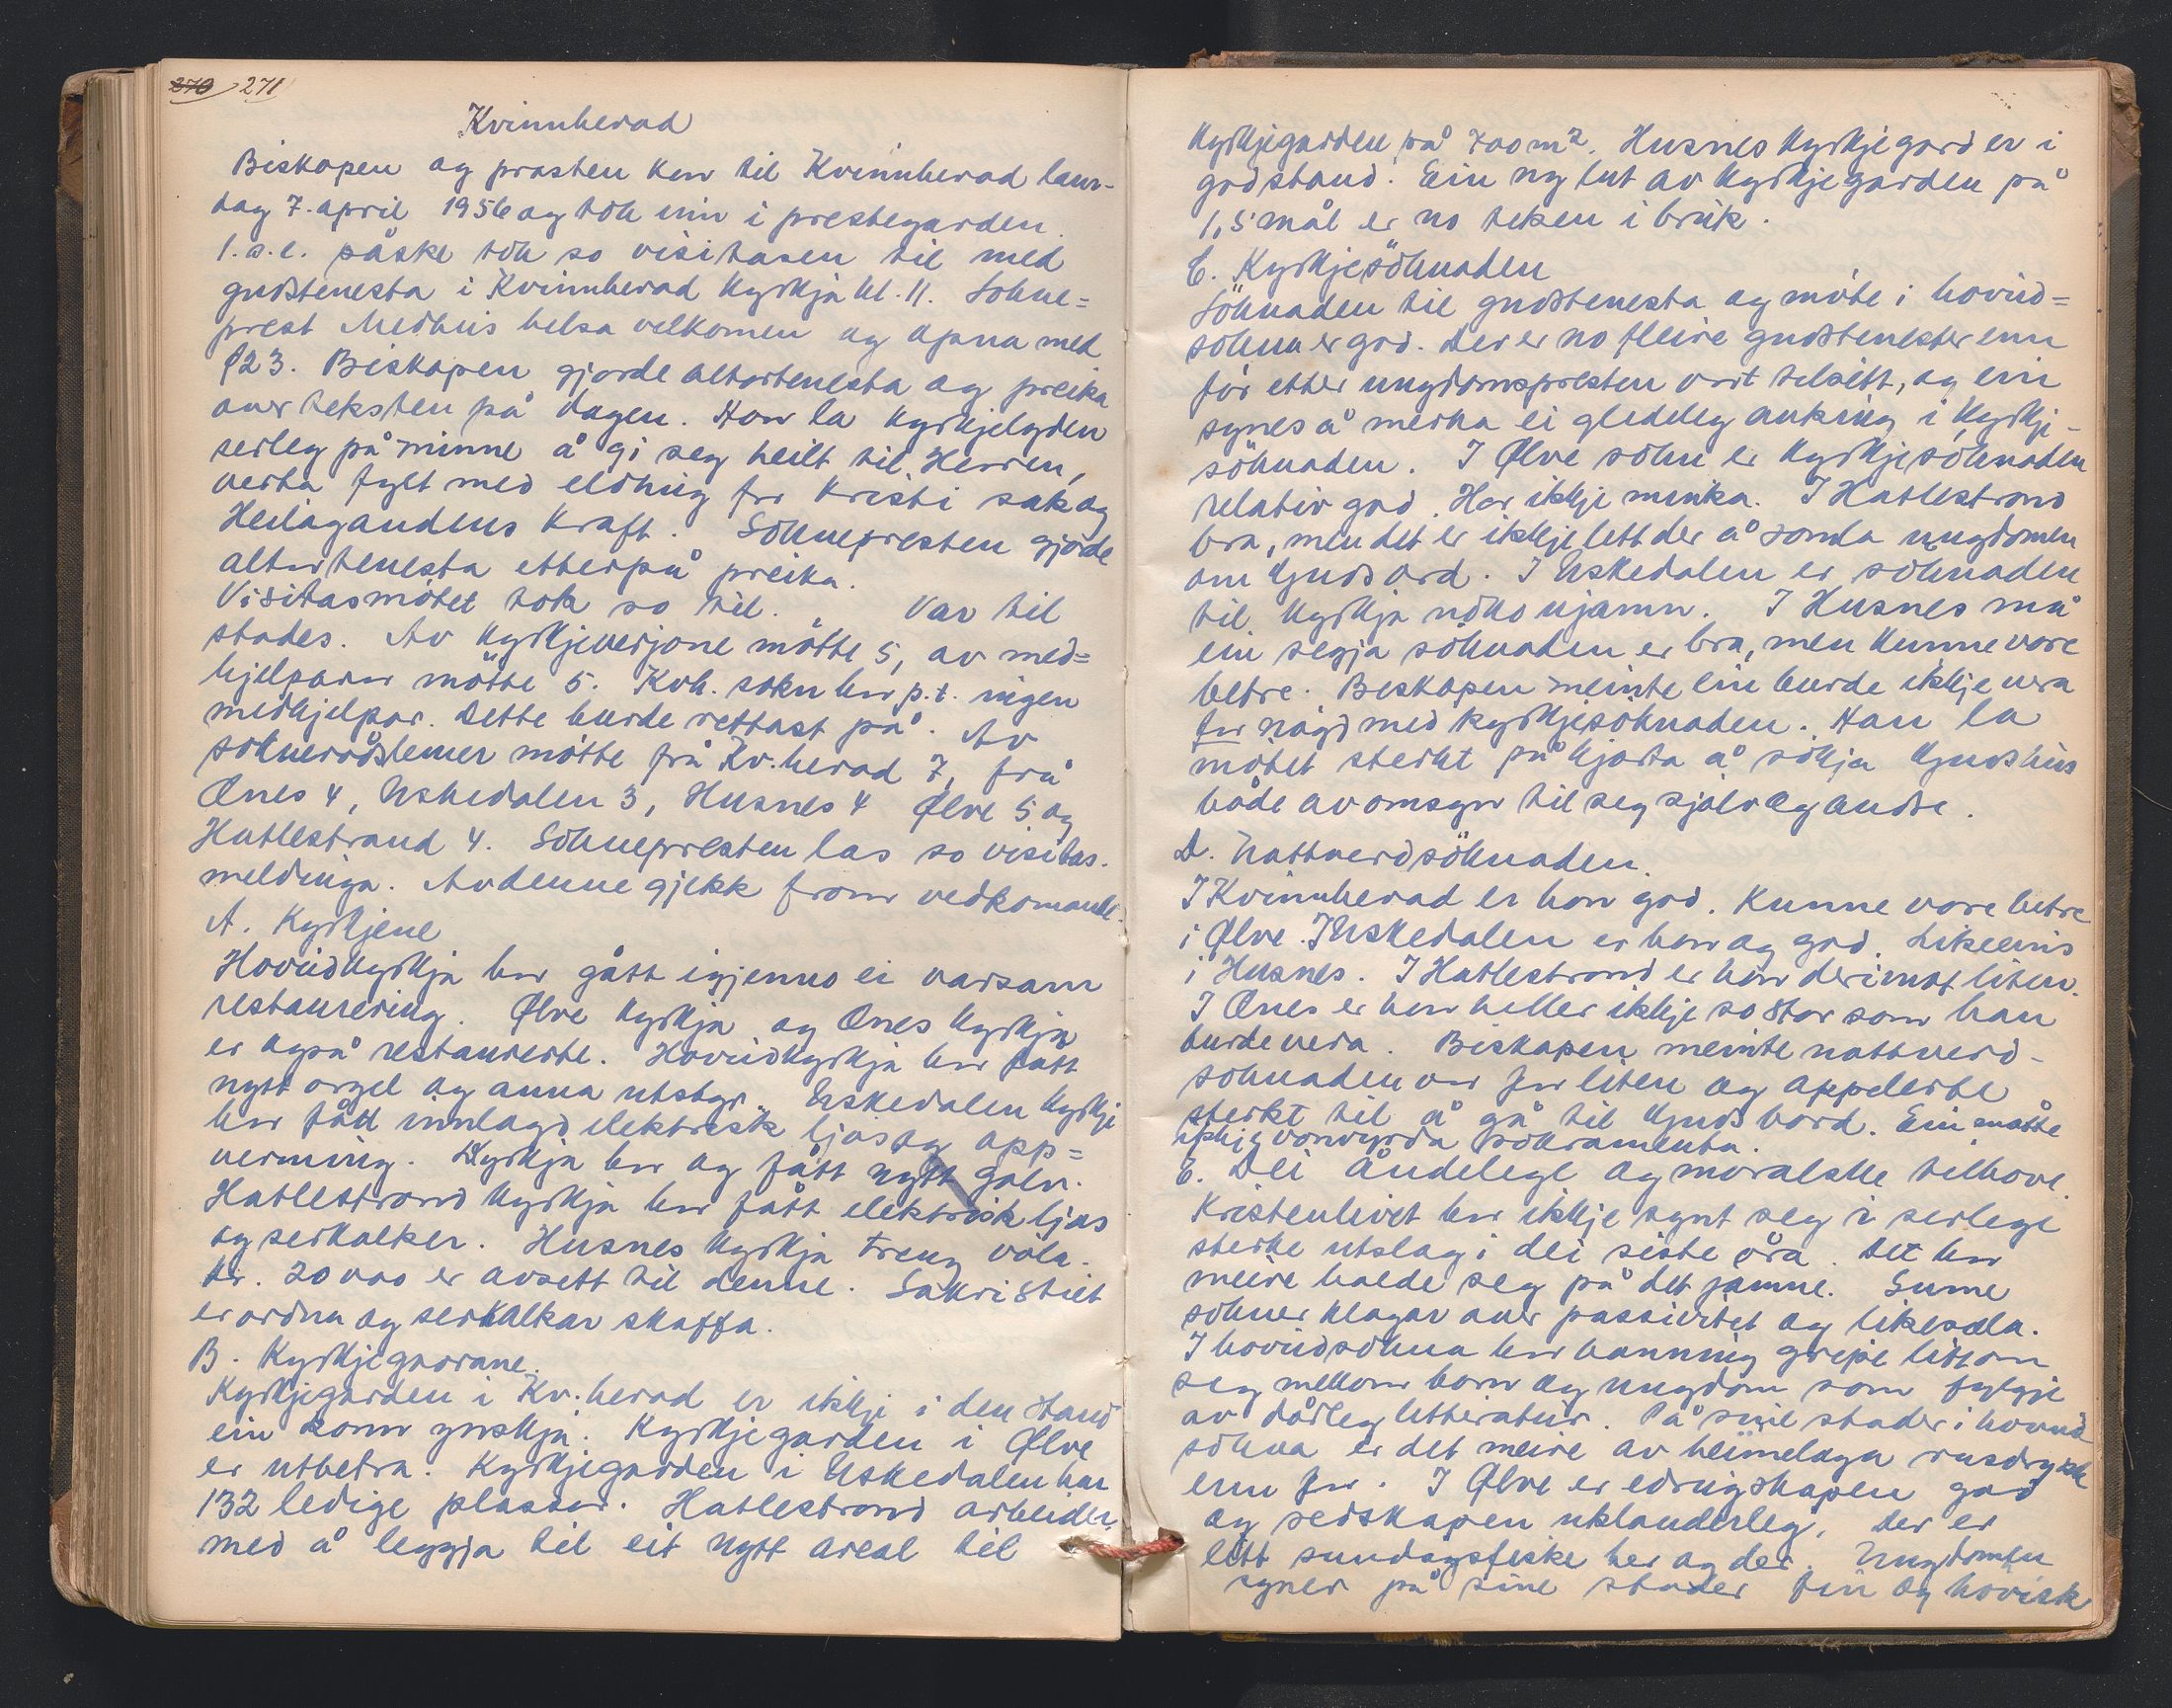 270 271
Kvinnherad
Biskopen og prosten kom til Kvinnherad laur-
dag 7. april 1956 og tok inn i prestegarden.
1. s. e. påske tok so visitasen til med
gudstenesta i Kvinnherad kyrkja kl. 11. Sokne=
prest Medhus helsa velkomen og opna med
§23. Biskopen gjorde altartenesta og preika
over teksten på dagen. Han la kyrkjelyden
serleg på minne å gi seg heilt til Herren,
verta fylt med eldhug for Kristi sak og
Heilagandens kraft. Soknepresten gjorde
altartenesta etterpå preika.
Visitasmötet tok so til. Var til
stades. Av kyrkjeverjone mötte 5, av med=
hjelparar mötte 5. Kvh. sokn har p.t. ingen
medhjelpar. Dette burde rettast på. Av
sokneråðslemer mötte frå Kv.herad 7, frå
Ænes 4, Uskedalen 3, Husnes 4 Ølve 5 og
Hatlestrand 4. Soknepresten las so visitas-
meldinga. Av denne gjekk fram vedkomande:
A. Kyrkjene
Hovudkyrkja har gått igjennom ei varsam
restaurering. Ølve kyrkja og Ænes kyrkja
er også restaurerte. Hovudkyrkja har fått
nytt orgel og anna utstyr. Uskedalen kyrkje
har fått innlagd elektrisk ljos og opp=
verming. Kyrkja har og fått nytt golv.
Hatlestrand kyrkja har fått elektrisk ljos
og serkalker. Husnes kyrkja treng völa.
kr. 20 000 er avsett til denne. Sakristiet
er ordna og serkalkar skaffa.
B. Kyrkjegardane.
Kyrkjegarden i Kv.herad er ikkje i den stand
ein kann ynskja. Kyrkjegarden i Ølve
er utbetra. Kyrkjegarden i Uskedalen har
132 ledige plassar. Hatlestrand arbeider
med å leggja til eit nytt areal til
kyrkjegarden på 700 m². Husnes kyrkjegard er i
god stand. Ein ny lut av kyrkjegarden på
1,5 mål er no teken i bruk.
C. Kyrkjesöknaden
Söknaden til gudstenesta og möte i hovud=
sokna er god. Der er no fleire gudstenester enn
för etter ungdomspresten vart tilsett, og ein
synes å merka ei gledeleg auking i kyrkje-
söknaden. I Ølve sokn er kyrkjesöknaden
relativ god. Har ikkje minka. I Hatlestrand
bra, men det er ikkje lett der å samla ungdomen
om Guds ord. I Uskedalen er söknaden
til kyrkja noko ujamn. I Husnes må
ein segja söknaden er bra, men kunne vore
betre. Biskopen meinte ein burde ikkje vera
for nögd med kyrkjesöknaden. Han la
mötet sterkt på hjarta å sökja Guds hus
både av omsyn til seg sjölv og andre.
D. Nattverdsöknaden.
I Kvinnherad er han god. Kunne vore betre
i Ølve. I Uskedalen er han og god. Likeeins
i Husnes. I Hatlestrand er han derimot liten.
I Ænes er han heller ikkje so stor som han
burde vera. Biskopen meinte nattverd-
söknaden var for liten og appelerte
sterkt til å gå til Guds bord. Ein måtte
ikkje vanvyrda sakramenta.
E. Dei åndelege og moralske tilhöve.
Kristenlivet har ikkje synt seg i serlege
sterke utslag i dei siste åra. Det har
meire halde seg på det jamne. Sume
sokner klagar over passivitet og likesæla.
I hovudsokna har banning gripe litt om
seg mellom born og ungdom som fylgje
av dårleg litteratur. På sine stader i hovud
sokna er det meire av heimelaga rusdrykk
enn för. I Ølve er edrugskapen god
og sedskapen uklanderleg. Der er
litt sundagsfiske her og der. Ungdomen
syner på sine stader fin og hövisk